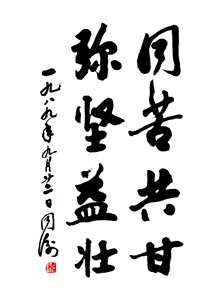 同苦共甘
弥坚益壮
一九八九年九月廿二日